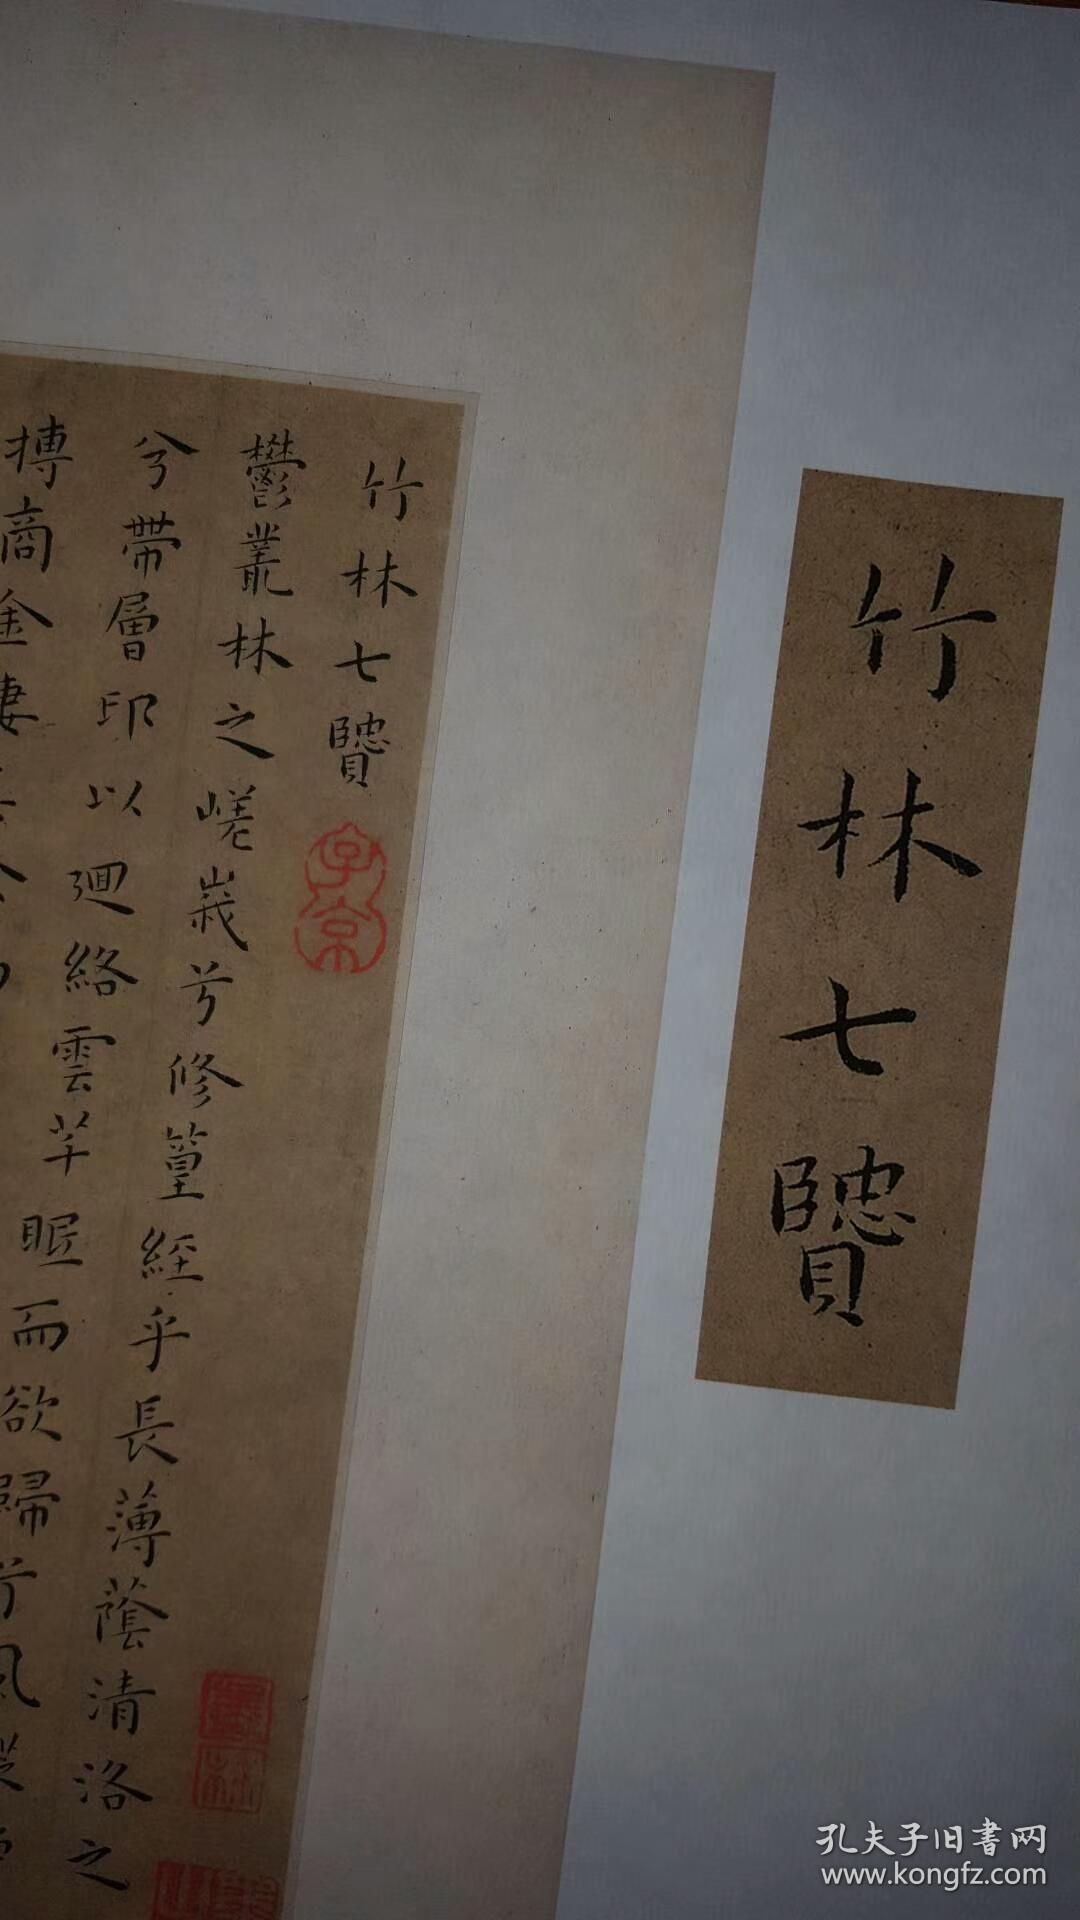 竹林七贒
竹林七贒
子京
鬱叢林之嵯峩兮修篁經乎長薄蔭清洛之
兮帶層邛以迴絡雲芊眠而欲歸兮風
摶商金悽
孔夫子旧書网
www.kongfz.com